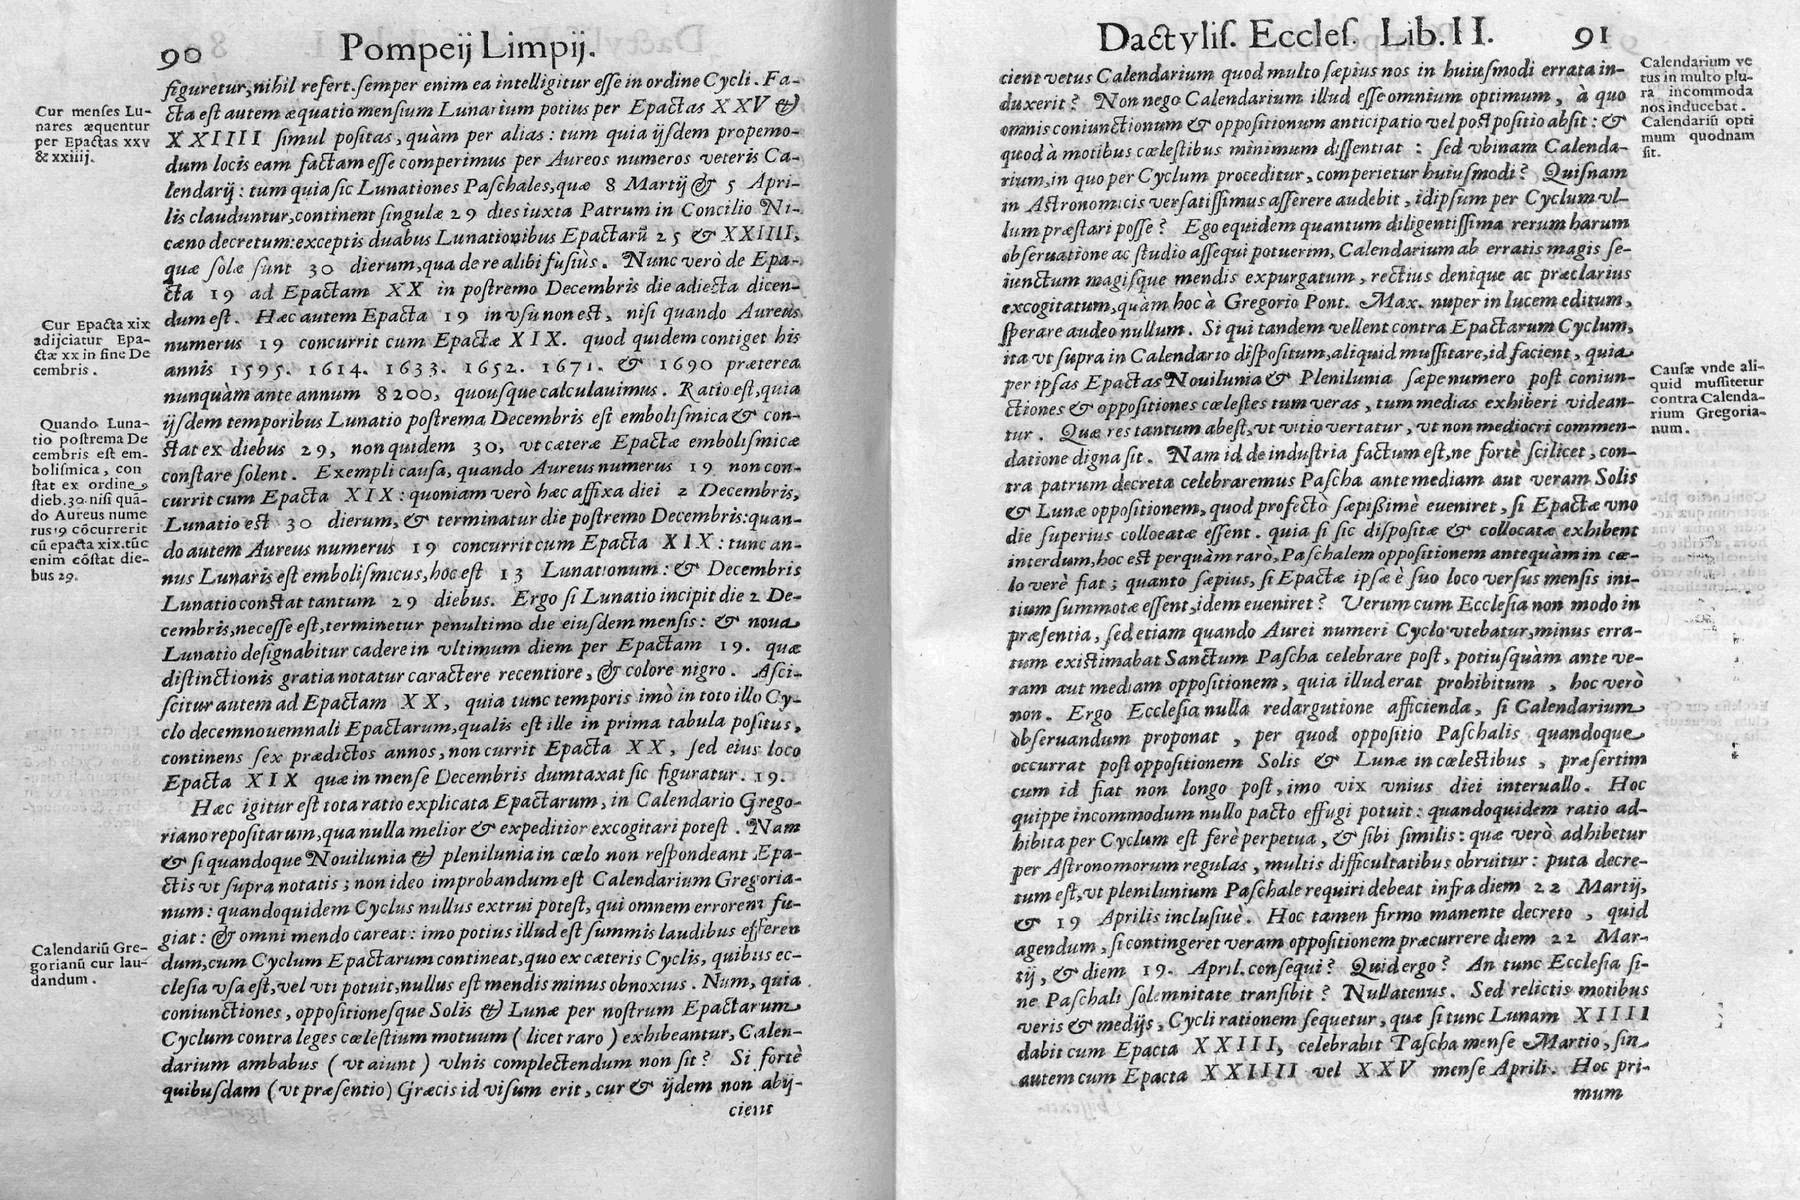 90 Pompeij Limpij.
figuretur, nihil refert. semper enim ea intelligitur esse in ordine Cycli. Fa-
cta est autem æquatio mensium Lunarium potius per Epactas XXV &
XXIIII simul positas, quàm per alias: tum quia ijsdem propemo-
dum locis eam factam esse comperimus per Aureos numeros veteris Ca-
lendarij: tum quia sic Lunationes Paschales, quæ 8 Martij & 5 Apri-
lis clauduntur, continent singulæ 29 dies iuxta Patrum in Concilio Ni-
cæno decretum: exceptis duabus Lunationibus Epactarũ 25 & XXIIII,
quæ solæ sunt 30 dierum, qua de re alibi fusiùs. Nunc verò de Epa-
cta 19 ad Epactam XX in postremo Decembris die adiecta dicen-
dum est. Hæc autem Epacta 19 in vsu non est, nisi quando Aureus
numerus 19 concurrit cum Epacta XIX. quod quidem contiget his
annis 1595. 1614. 1633. 1652. 1671. & 1690 præterea
nunquàm ante annum 8200, quousque calculauimus. Ratio est, quia
ijsdem temporibus Lunatio postrema Decembris est embolismica & con-
stat ex diebus 29, non quidem 30, vt cæteræ Epactæ embolismicæ
constare solent. Exempli causa, quando Aureus numerus 19 non con-
currit cum Epacta XIX: quoniam verò hæc affixa diei 2 Decembris,
Lunatio est 30 dierum, & terminatur die postremo Decembris: quan-
do autem Aureus numerus 19 concurrit cum Epacta XIX: tunc an-
nus Lunaris est embolismicus, hoc est 13 Lunationum: & Decembris
Lunatio constat tantum 29 diebus. Ergo si Lunatio incipit die 2 De-
cembris, necesse est, terminetur penultimo die eiusdem mensis: & noua
Lunatio designabitur cadere in vltimum diem per Epactam 19. quæ
distinctionis gratia notatur caractere recentiore, & colore nigro. Asci-
scitur autem ad Epactam XX, quia tunc temporis imò in toto illo Cy-
clo decemnouemnali Epactarum, qualis est ille in prima tabula positus,
continens sex prædictos annos, non currit Epacta XX, sed eius loco
Epacta XIX quæ in mense Decembris dumtaxat sic figuratur. 19.
Hæc igitur est tota ratio explicata Epactarum, in Calendario Grego-
riano repositarum, qua nulla melior & expeditior excogitari potest. Nam
& si quandoque Nouilunia & plenilunia in cœlo non respondeant Epa-
ctis vt supra notatis; non ideo improbandum est Calendarium Gregoria-
num: quandoquidem Cyclus nullus extrui potest, qui omnem errorem fu-
giat: & omni mendo careat: imo potius illud est summis laudibus efferen
dum, cum Cyclum Epactarum contineat, quo ex cæteris Cyclis, quibus ec-
clesia vsa est, vel vti potuit, nullus est mendis minus obnoxius. Num, quia
coniunctiones, oppositionesque Solis & Lunæ per nostrum Epactarum
Cyclum contra leges cœlestium motuum (licet raro) exhibeantur, Calen-
darium ambabus (vt aiunt) vlnis complectendum non sit? Si fortè
quibusdam (vt præsentio) Græcis id visum erit, cur & ijdem non abij-
cient
Cur menses Lu-
nares æquentur
per Epactas xxv
& xxiiij.
Cur Epacta xix
adijciatur Epa-
ctæ xx in fine De
cembris.
Quando Luna-
tio postrema De
cembris est em-
bolismica, con
stat ex ordine
dieb. 30 nisi quã-
do Aureus nume
rus 19 cõcurrerit
cũ epacta xix. tũc
enim cõstat die-
bus 29.
Calendariũ Gre-
gorianũ cur lau-
dandum.
Dactylis. Eccles. Lib. II. 91
cient vetus Calendarium quod multo sæpius nos in huiusmodi errata in-
duxerit? Non nego Calendarium illud esse omnium optimum, à quo
omnis coniunctionum & oppositionum anticipatio vel postpositio absit: &
quod à motibus cœlestibus minimum dissentiat: sed vbinam Calenda-
rium, in quo per Cyclum proceditur, comperietur huiusmodi? Quisnam
in Astronomicis versatissimus asserere audebit, idipsum per Cyclum vl-
lum præstari posse? Ego equidem quantum diligentissima rerum harum
obseruatione ac studio assequi potuerim, Calendarium ab erratis magis se-
iunctum magisque mendis expurgatum, rectius denique ac præclarius
excogitatum, quàm hoc à Gregorio Pont. Max. nuper in lucem editum,
sperare audeo nullum. Si qui tandem vellent contra Epactarum Cyclum,
ita vt supra in Calendario dispositum, aliquid mussitare, id facient, quia
per ipsas Epactas Nouilunia & Plenilunia sæpenumero post coniun-
ctiones & oppositiones cœlestes tum veras, tum medias exhiberi videan-
tur. Quæ res tantum abest, vt vitio vertatur, vt non mediocri commen-
datione digna sit. Nam id de industria factum est, ne fortè scilicet, con-
tra patrum decreta celebraremus Pascha ante mediam aut veram Solis
& Lunæ oppositionem, quod profectò sæpissimè eueniret, si Epactæ vno
die superius colloeatæ essent. quia si sic dispositæ & collocatæ exhibent
interdum, hoc est perquàm rarò, Paschalem oppositionem antequàm in cœ-
lo verè fiat; quanto sæpius, si Epactæ ipsæ è suo loco versus mensis ini-
tium summotæ essent, idem eueniret? Verum cum Ecclesia non modo in
præsentia, sed etiam quando Aurei numeri Cyclo vtebatur, minus erra-
tum existimabat Sanctum Pascha celebrare post, potiusquàm ante ve-
ram aut mediam oppositionem, quia illud erat prohibitum, hoc verò
non. Ergo Ecclesia nulla redargutione afficienda, si Calendarium
obseruandum proponat, per quod oppositio Paschalis quandoque
occurrat post oppositionem Solis & Lunæ in cœlestibus, præsertim
cum id fiat non longo post, imo vix vnius diei interuallo. Hoc
quippe incommodum nullo pacto effugi potuit: quandoquidem ratio ad-
hibita per Cyclum est ferè perpetua, & sibi similis: quæ verò adhibetur
per Astronomorum regulas, multis difficultatibus obruitur: puta decre-
tum est, vt plenilunium Paschale requiri debeat infra diem 22 Martij,
& 19 Aprilis inclusiuè. Hoc tamen firmo manente decreto, quid
agendum, si contingeret veram oppositionem præcurrere diem 22 Mar-
tij, & diem 19. April. consequi? Quid ergo? An tunc Ecclesia si-
ne Paschali solemnitate transibit? Nullatenus. Sed relictis motibus
veris & medijs, Cycli rationem sequetur, quæ si tunc Lunam XIIII
dabit cum Epacta XXIII, celebrabit Pascha mense Martio, sin
autem cum Epacta XXIIII vel XXV mense Aprili. Hoc pri-
mum
Calendarium ve
tus in multo plu-
ra incommoda
nos inducebat.
Calendariũ opti
mum quodnam
sit.
Causæ vnde ali-
quid mussitetur
contra Calenda-
rium Gregoria-
num.